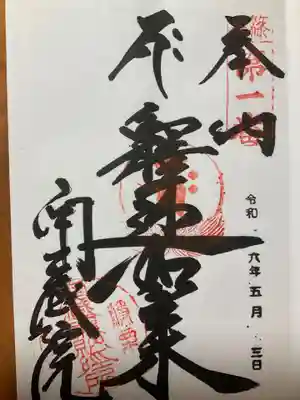 奉納
第一番
釋迦如来
令和六年五月三日
南蔵院
篠栗